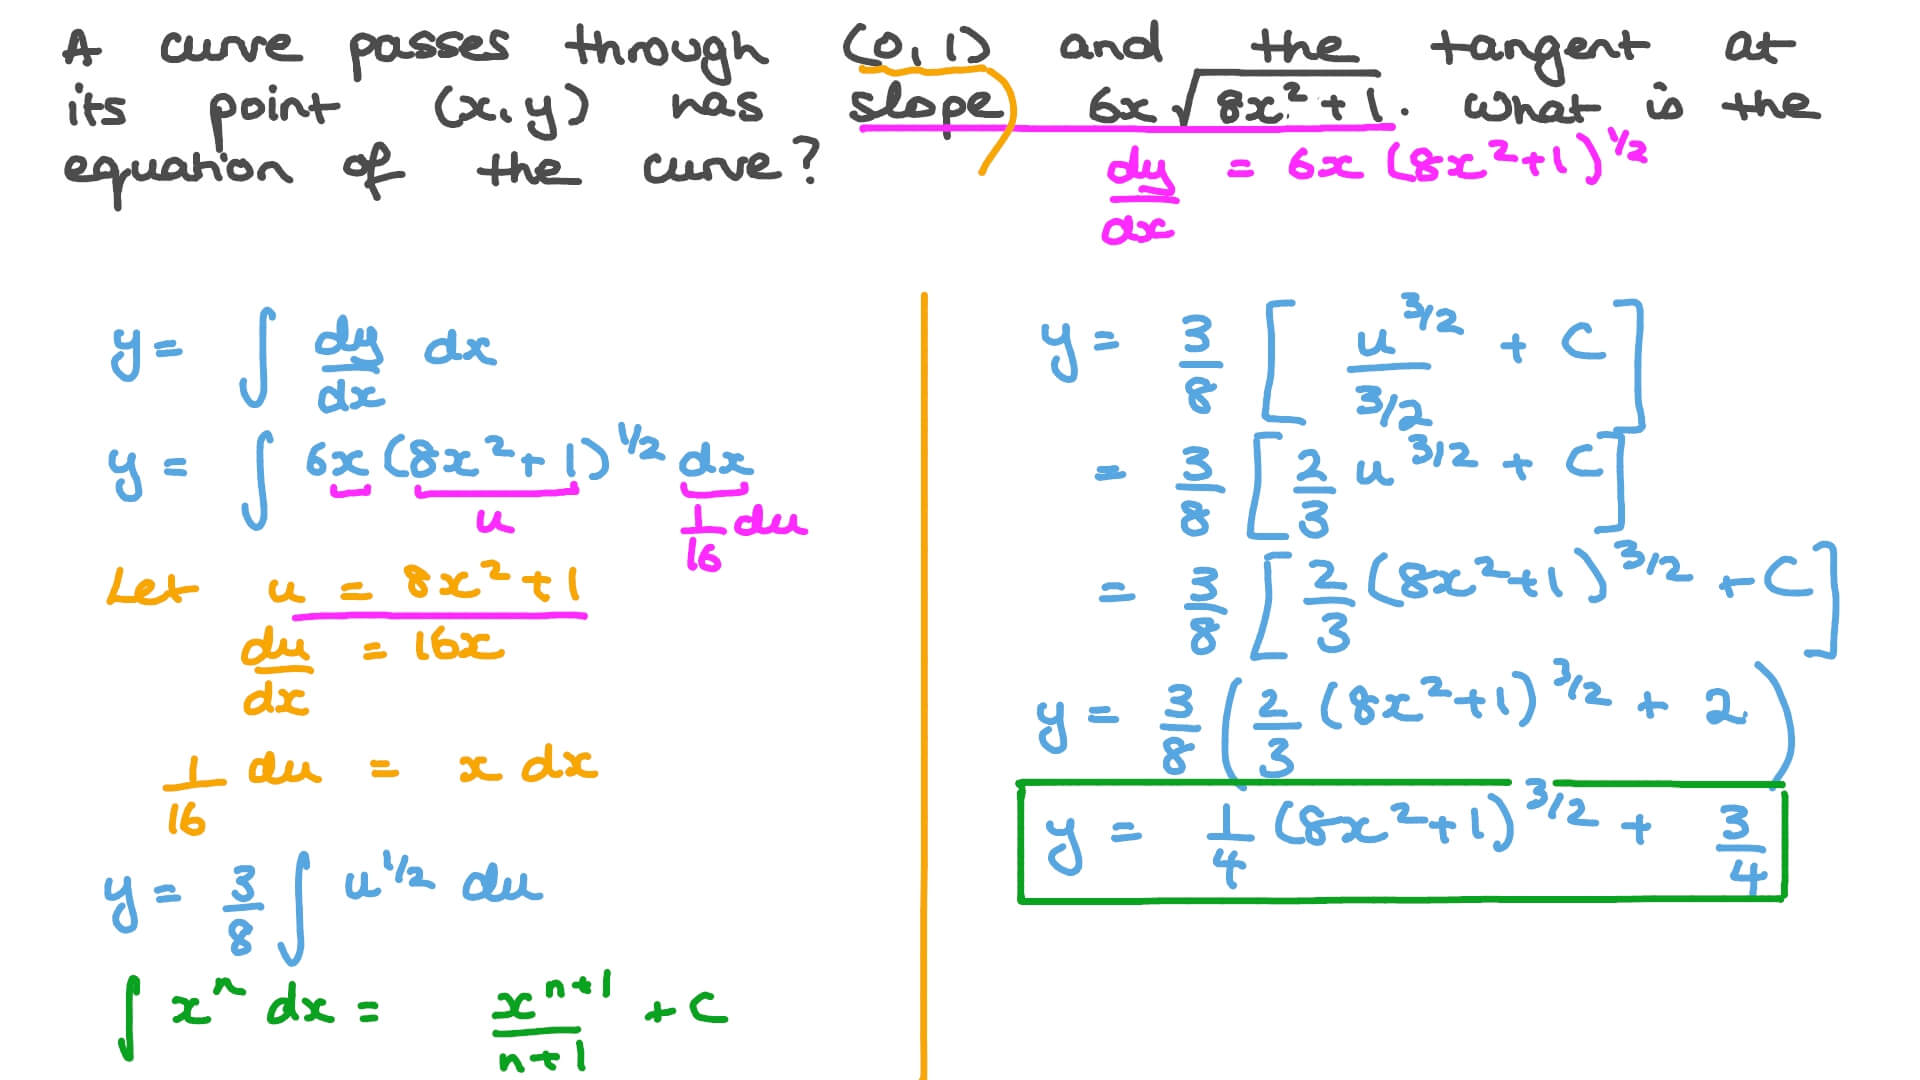 A curve passes through (0,1) and the tangent at
its point (x,y) has slope 6x√(8x²+1). What is the
equation of the curve?
dy/dx = 6x(8x²+1)^1/2
y = ∫ dy/dx dx
y = ∫ 6x(8x²+1)^1/2 dx
u
1/16 du
Let u = 8x²+1
du/dx = 16x
1/16 du = x dx
y = 3/8 ∫ u^1/2 du
∫ x^n dx = x^(n+1)/(n+1) + C
y = 3/8 [u^3/2 / 3/2 + C]
= 3/8 [2/3 u^3/2 + C]
= 3/8 [2/3 (8x²+1)^3/2 + C]
y = 3/8 (2/3 (8x²+1)^3/2 + 2)
y = 1/4 (8x²+1)^3/2 + 3/4